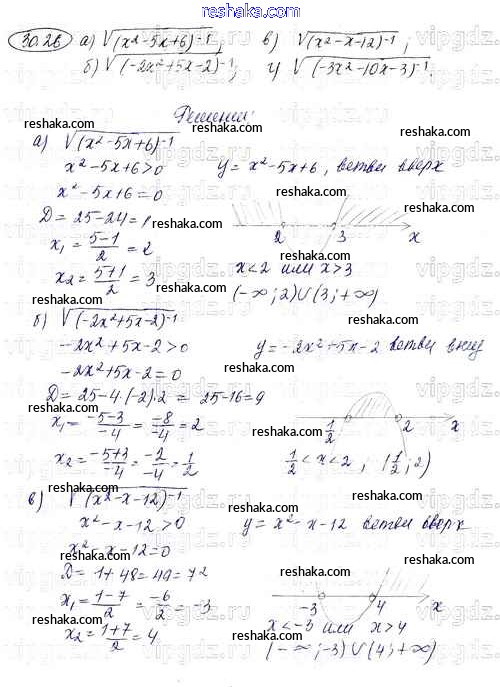 reshaka.com
30.26 а) √(x²-5x+6)⁻¹; в) √(x²-x-12)⁻¹;
б) √(-2x²+5x-2)⁻¹; г) √(-3x²-10x-3)⁻¹.
Решение:
а) √(x²-5x+6)⁻¹
x²-5x+6>0 y=x²-5x+6, ветви вверх
x²-5x+6=0
D=25-24=1
x₁=(5-1)/2=2 2 3 x
x₂=(5+1)/2=3 x<2 или x>3
(-∞;2)∪(3;+∞)
б) √(-2x²+5x-2)⁻¹
-2x²+5x-2>0 y=-2x²+5x-2 ветви вниз
-2x²+5x-2=0
D=25-4·(-2)·2=25-16=9
x₁=(-5-3)/-4=-8/-4=2 1/2 2 x
x₂=(-5+3)/-4=-2/-4=1/2 1/2<x<2, (1/2;2)
в) √(x²-x-12)⁻¹
x²-x-12>0 y=x²-x-12 ветви вверх
x²-x-12=0
D=1+48=49=7²
x₁=(1-7)/2=-6/2=-3 -3 4 x
x₂=(1+7)/2=4 x<-3 или x>4
(-∞;-3)∪(4;+∞)